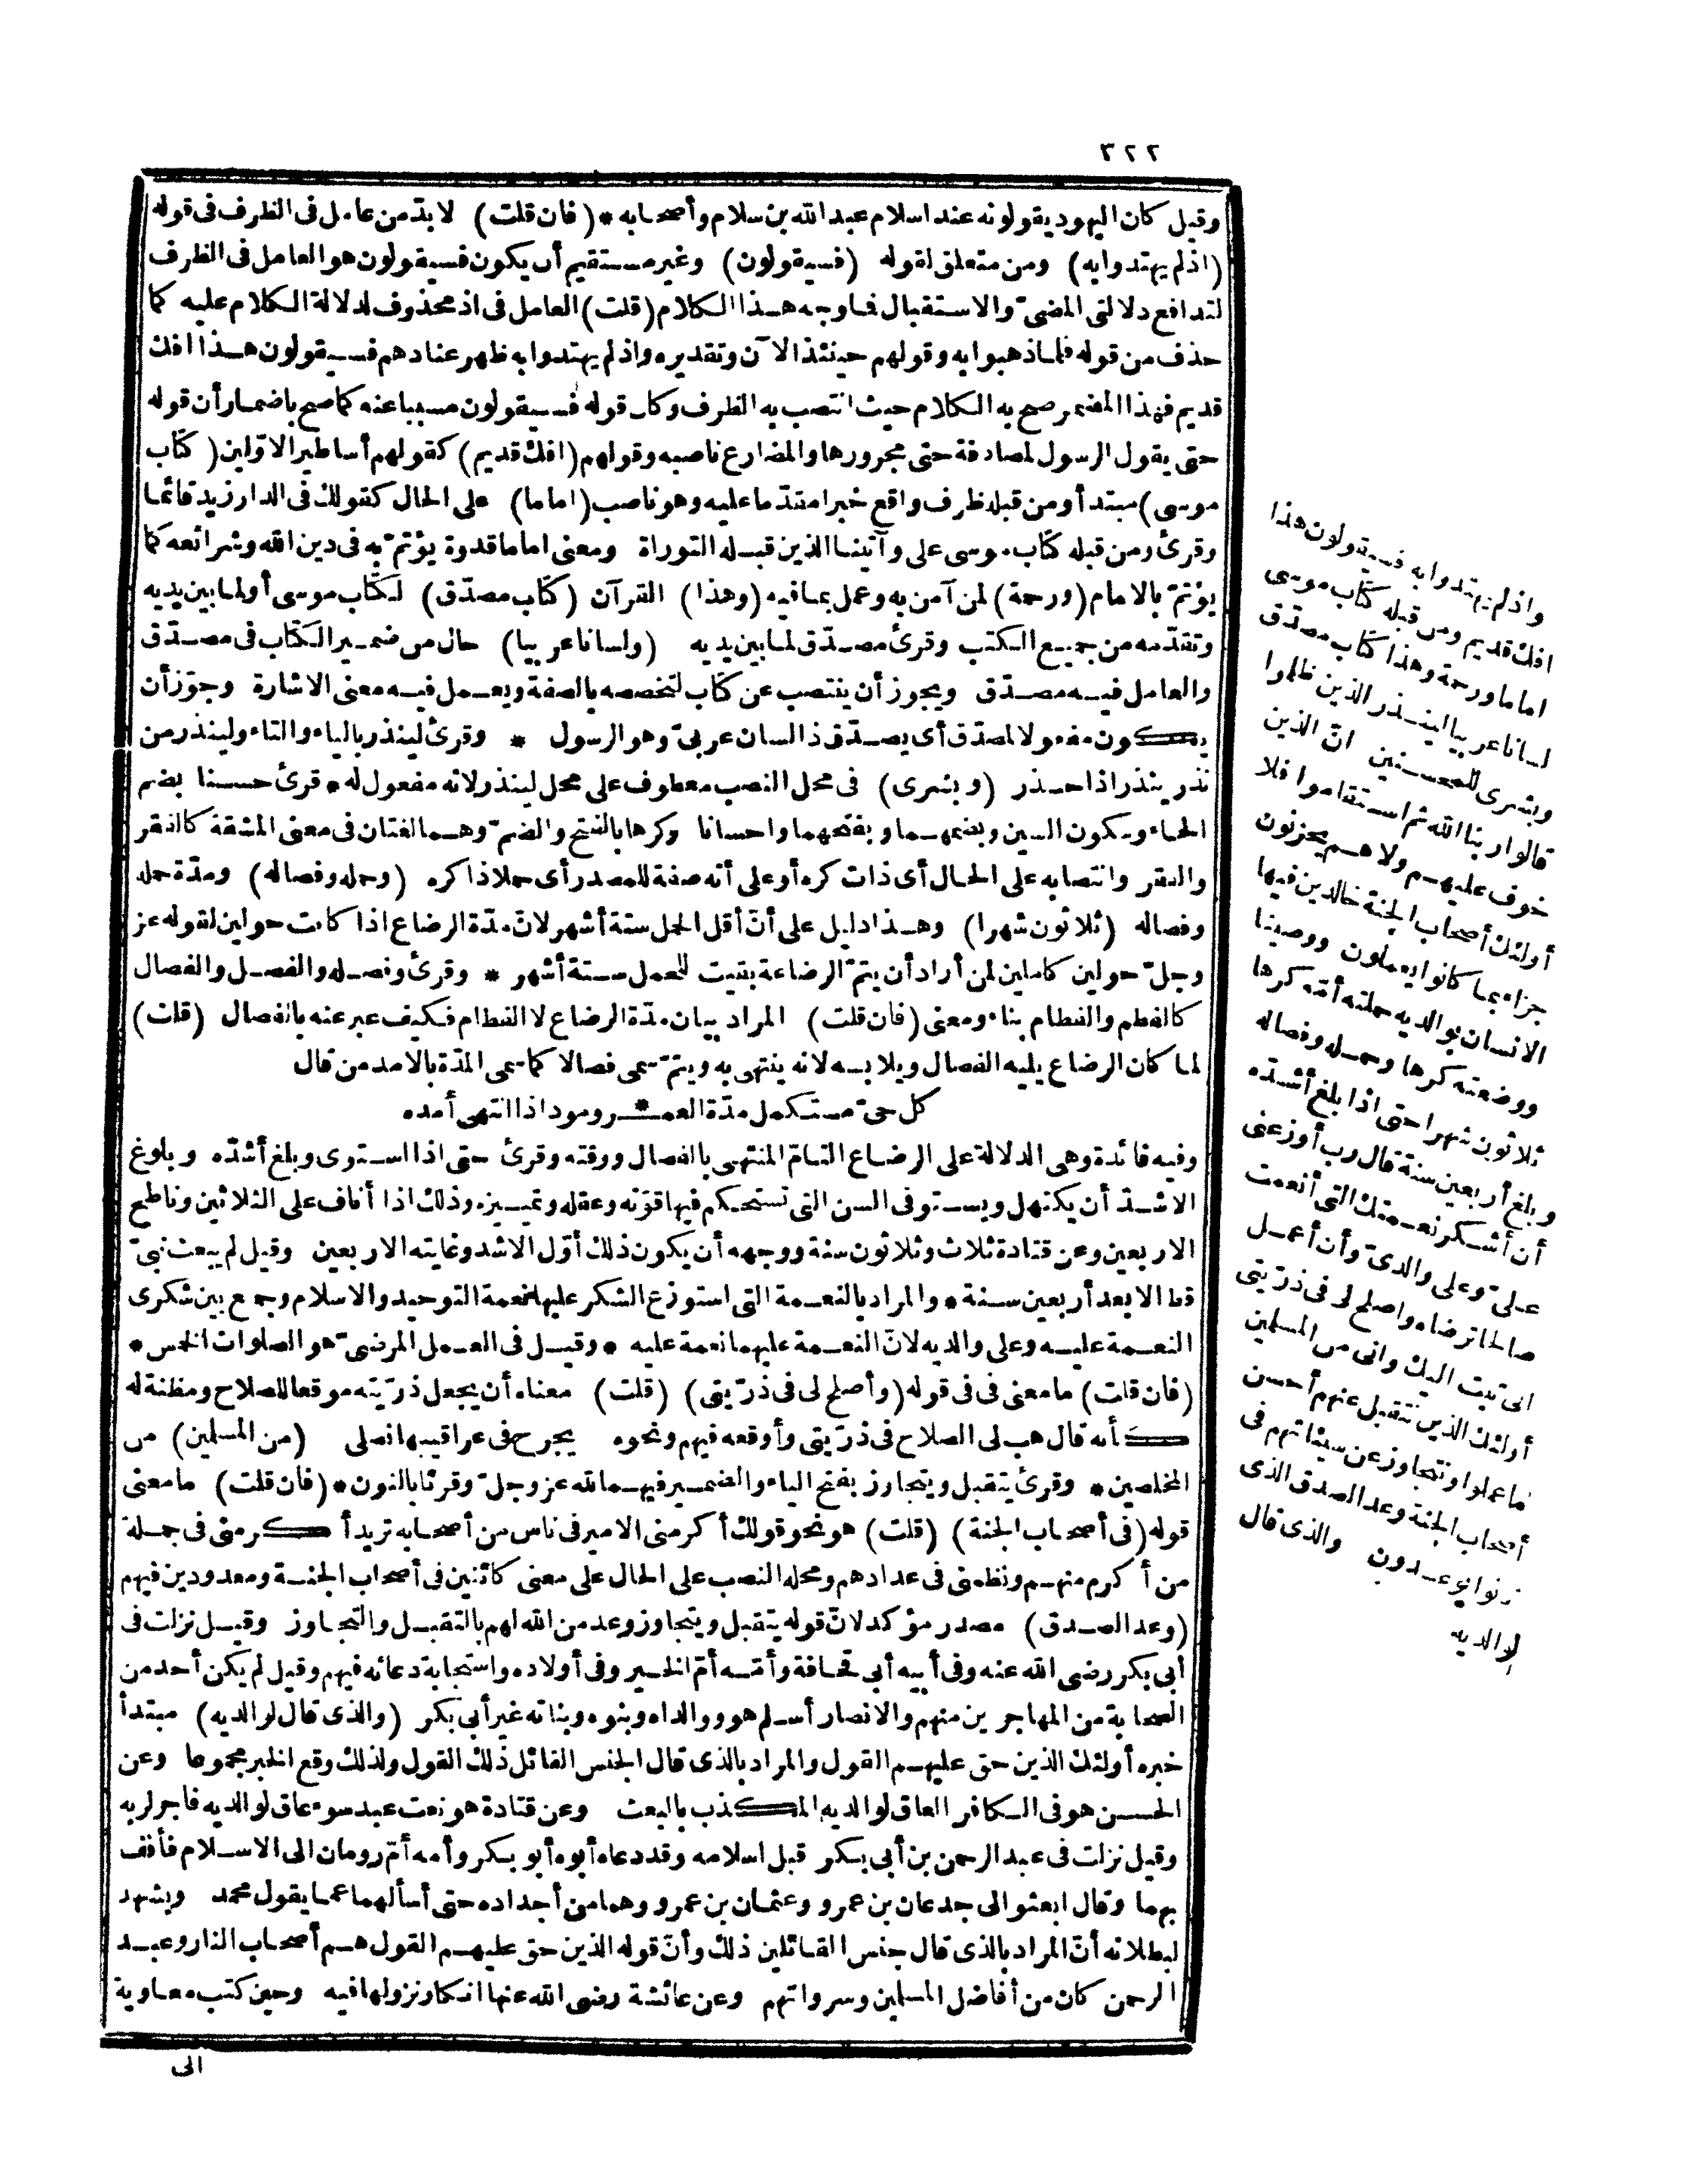 ٣٢٢
وقيل كان اليهود يقولونه عند اسلام عبد الله بن سلام وأصحابه * (فان قلت) لا بدّ من عامل فى الظرف فى قوله
(اذلم يهتدوا به) ومن متعلق لقوله (فسيقولون) وغير مستقيم أن يكون فسيقولون هو العامل فى الظرف
لتدافع دلالتى المضىّ والاستقبال فما وجه هذا الكلام (قلت) العامل فى اذ محذوف لدلالة الكلام عليه كما
حذف من قوله فلما ذهبوا به وقولهم حينئذ الآن وتقديره واذلم يهتدوا به ظهر عنادهم فسيقولون هذا افك
قديم فهذا المضمر صح به الكلام حيث انتصب به الظرف وكان قوله فسيقولون مسببا عنه كما صح باضمار أن قوله
حتى يقول الرسول لمصادفة حتى مجرورها والمضارع ناصبه وقولهم (افك قديم) كقولهم أساطير الاوّلين (كتاب
موسى) مبتدأ ومن قبله ظرف واقع خبرا مقدّما عليه وهو ناصب (اماما) على الحال كقولك فى الدار زيد قائما
وقرئ ومن قبله كتاب موسى على وآتينا الذين قبله التوراة ومعنى اماما قدوة يؤتمّ به فى دين الله وشرائعه كما
يؤتمّ بالامام (ورحمة) لمن آمن به وعمل بما فيه (وهذا) القرآن (كتاب مصدّق) لكتاب موسى أو لما بين يديه
وتقدّمه من جميع الكتب وقرئ مصدّق لما بين يديه (ولسانا عربيا) حال من ضمير الكتاب فى مصدّق
والعامل فيه مصدّق ويجوز أن ينتصب عن كتاب لتخصصه بالصفة ويعمل فيه معنى الاشارة وجوّز أن
يكون مفعولا لمصدّق أى يصدّق ذا لسان عربىّ وهو الرسول * وقرئ لينذر بالياء والتاء ولينذر من
نذر ينذر اذا حذر (وبشرى) فى محل النصب معطوف على محل لينذر لانه مفعول له * قرئ حسنا بضم
الحاء وسكون السين وبضمهما وبفتحهما واحسانا وكرها بالفتح والضمّ وهما لغتان فى معنى المشقة كالفقر
والفقر وانتصابه على الحال أى ذات كره أو على أنه صفة للمصدر أى حملا ذا كره (وحمله وفصاله) ومدّة حمله
وفصاله (ثلاثون شهرا) وهذا دليل على أنّ أقل الحمل ستة أشهر لانّ مدّة الرضاع اذا كانت حولين لقوله عز
وجلّ حولين كاملين لمن أراد أن يتمّ الرضاعة بقيت للحمل ستة أشهر * وقرئ وفصله والفصل والفصال
كالفطم والفطام بناء ومعنى (فان قلت) المراد بيان مدّة الرضاع لا الفطام فكيف عبر عنه بالفصال (قلت)
لما كان الرضاع يليه الفصال ويلابسه لانه ينتهى به ويتمّ سمى فصالا كما سمى المدّة بالامد من قال
كل حىّ مستكمل مدّة العمـ * ـر ومود اذا انتهى أمده
وفيه فائدة وهى الدلالة على الرضاع التامّ المنتهى بالفصال ووقته وقرئ حتى اذا استوى وبلغ أشدّه وبلوغ
الاشدّ أن يكتهل ويستوفى السن التى تستحكم فيها قوّته وعقله وتمييزه وذلك اذا أناف على الثلاثين وناطح
الاربعين وعن قتادة ثلاث وثلاثون سنة ووجهه أن يكون ذلك أوّل الاشد وغايته الاربعين وقيل لم يبعث نبىّ
قط الا بعد أربعين سنة * والمراد بالنعمة التى استوزع الشكر عليها نعمة التوحيد والاسلام وجمع بين شكرى
النعمة عليه وعلى والديه لانّ النعمة عليهما نعمة عليه * وقيل فى العمل المرضىّ هو الصلوات الخمس *
(فان قلت) ما معنى فى فى قوله (وأصلح لى فى ذرّيتى) (قلت) معناه أن يجعل ذرّيته موقعا للصلاح ومظنة له
كأنه قال هب لى الصلاح فى ذرّيتى وأوقعه فيهم ونحوه يجرح فى عراقيبها نصلى (من المسلمين) من
المخلصين * وقرئ يتقبل ويتجاوز بفتح الياء والضمير فيهما لله عز وجلّ وقرئا بالنون * (فان قلت) ما معنى
قوله (فى أصحاب الجنة) (قلت) هو نحو قولك أكرمنى الامير فى ناس من أصحابه تريد أكرمنى فى جملة
من أكرم منهم ونظمنى فى عدادهم ومحله النصب على الحال على معنى كائنين فى أصحاب الجنة ومعدودين فيهم
(وعد الصدق) مصدر مؤكد لانّ قوله يتقبل ويتجاوز وعد من الله لهم بالتقبل والتجاوز وقيل نزلت فى
أبى بكر رضى الله عنه وفى أبيه أبى قحافة وأمّه أمّ الخير وفى أولاده واستجابة دعائه فيهم وقيل لم يكن أحد من
الصحابة من المهاجرين منهم والانصار أسلم هو ووالداه وبنوه وبناته غير أبى بكر (والذى قال لوالديه) مبتدأ
خبره أولئك الذين حق عليهم القول والمراد بالذى قال الجنس القائل ذلك القول ولذلك وقع الخبر مجموعا وعن
الحسن هو فى الكافر العاق لوالديه المكذب بالبعث وعن قتادة هو نعت عبد سوء عاق لوالديه فاجر لربه
وقيل نزلت فى عبد الرحمن بن أبى بكر قبل اسلامه وقد دعاه أبوه أبو بكر وأمه أمّ رومان الى الاسلام فأفف
بهما وقال ابعثوا لى جدعان بن عمرو وعثمان بن عمرو وهما من أجداده حتى أسألهما عما يقول محمد ويشهد
لبطلانه أنّ المراد بالذى قال جنس القائلين ذلك وأنّ قوله الذين حق عليهم القول هم أصحاب النار وعبد
الرحمن كان من أفاضل المسلمين وسرواتهم وعن عائشة رضى الله عنها انكار نزولها فيه وحين كتب معاوية
الى
واذلم يهتدوا به فسيقولون هذا
افك قديم ومن قبله كتاب موسى
اماما ورحمة وهذا كتاب مصدّق
لسانا عربيا لينذر الذين ظلموا
وبشرى للمحسنين انّ الذين
قالوا ربنا الله ثم استقاموا فلا
خوف عليهم ولا هم يحزنون
أولئك أصحاب الجنة خالدين فيها
جزاء بما كانوا يعملون ووصينا
الانسان بوالديه حملته أمّه كرها
ووضعته كرها وحمله وفصاله
ثلاثون شهرا حتى اذا بلغ أشدّه
وبلغ أربعين سنة قال رب أوزعنى
أن أشكر نعمتك التى أنعمت
علىّ وعلى والدىّ وأن أعمل
صالحا ترضاه واصلح لى فى ذرّيتى
انى تبت اليك وانى من المسلمين
أولئك الذين نتقبل عنهم أحسن
ما عملوا ونتجاوز عن سيئاتهم فى
أصحاب الجنة وعد الصدق الذى
كانوا يوعدون والذى قال
لوالديه